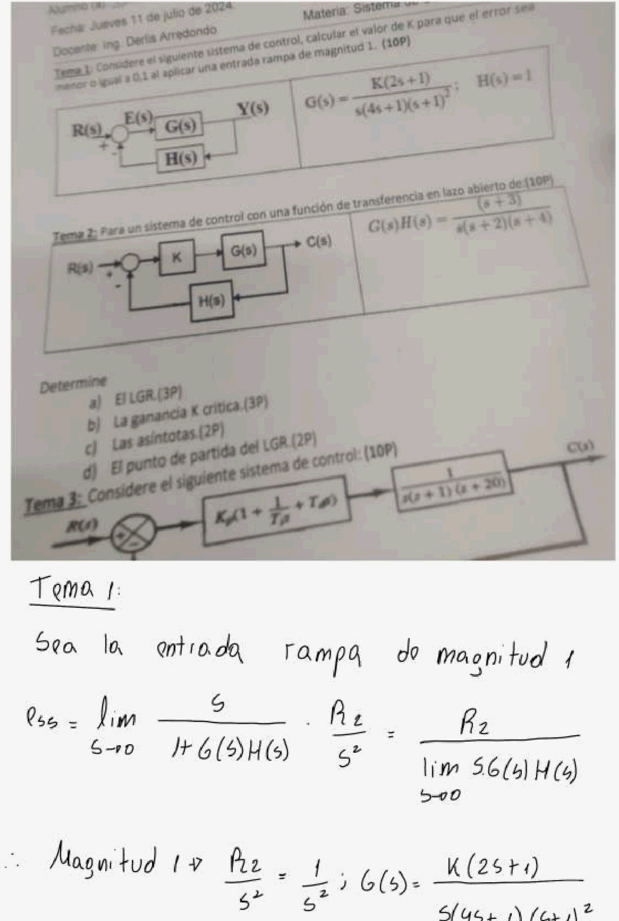 Fecha: Jueves 11 de julio de 2024
Materia: Sistema
Docente: Ing. Derlis Arredondo
Tema 1: Considere el siguiente sistema de control, calcular el valor de K para que el error sea
menor o igual a 0,1 al aplicar una entrada rampa de magnitud 1. (10P)
R(s) + - E(s) G(s) Y(s) H(s)
G(s) = K(2s+1) / s(4s+1)(s+1)² ; H(s) = 1
Tema 2: Para un sistema de control con una función de transferencia en lazo abierto de:(10P)
R(s) + - K G(s) C(s) H(s)
G(s)H(s) = (s + 3) / s(s + 2)(s + 4)
Determine
a) El LGR.(3P)
b) La ganancia K critica.(3P)
c) Las asíntotas.(2P)
d) El punto de partida del LGR.(2P)
Tema 3: Considere el siguiente sistema de control: (10P)
R(s) + - Kₚ(1 + 1/Tᵢs + T_d s) 1 / s(s + 1)(s + 20) C(s)
Tema 1:
Sea la entrada rampa de magnitud 1
ess = lim s→0 s / 1+G(s)H(s) · R2 / s² = R2 / lim s→0 s.G(s)H(s)
∴ Magnitud 1 → R2 / s² = 1 / s² ; G(s) = K(2s+1) / s(4s+1)(s+1)²